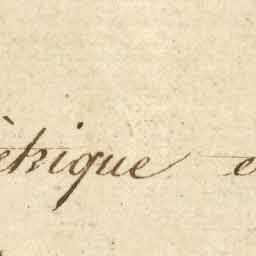 èkique e